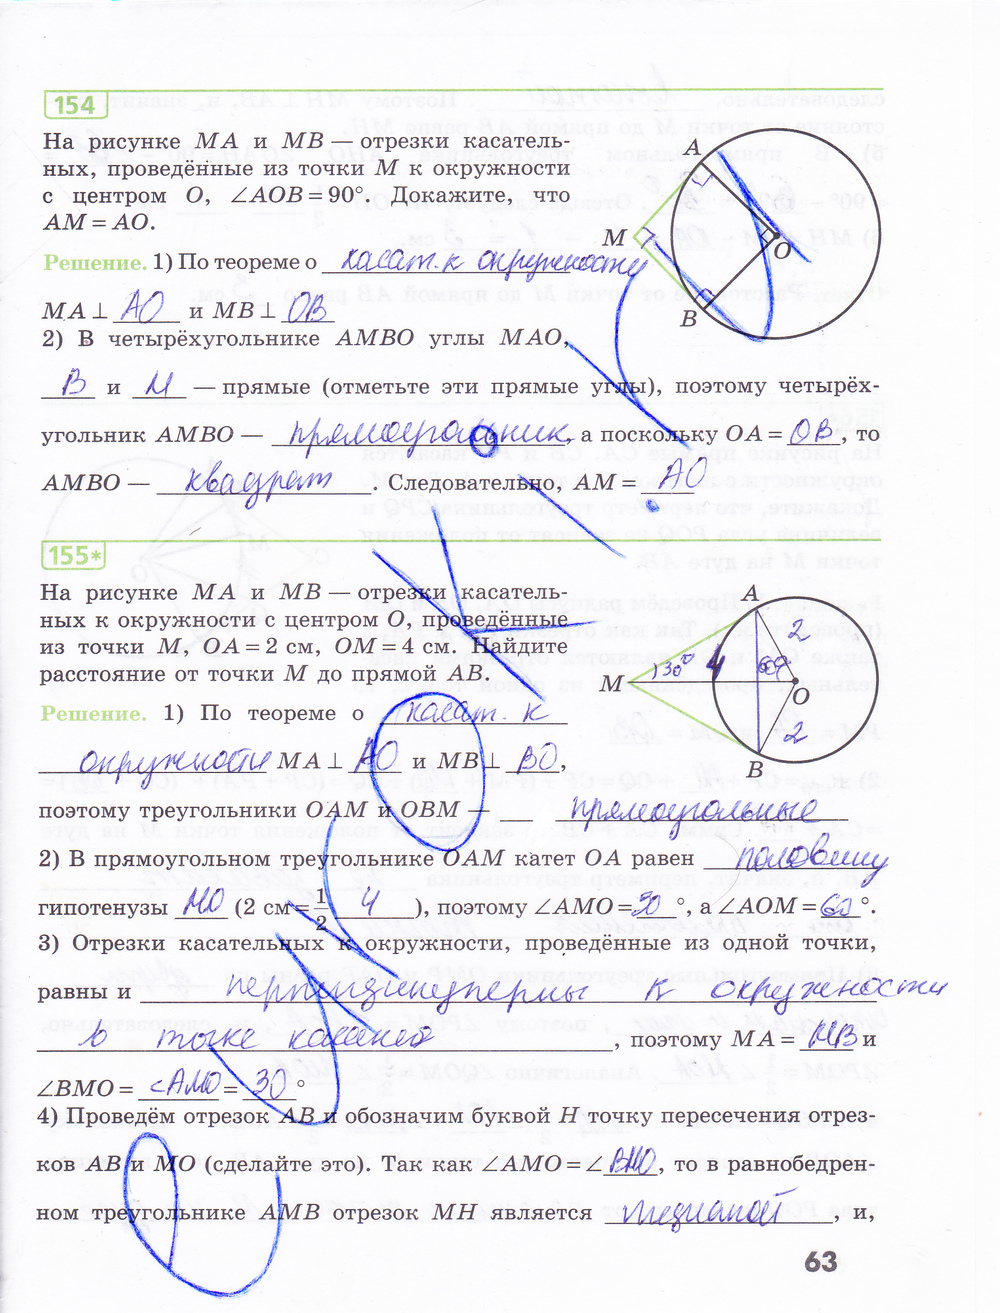 154
На рисунке MA и MB — отрезки касатель-
ных, проведённые из точки M к окружности
с центром O, ∠AOB = 90°. Докажите, что
AM = AO.
Решение. 1) По теореме о касат. к окружности
MA ⊥ AO и MB ⊥ OB
2) В четырёхугольнике AMBO углы MAO,
B и M — прямые (отметьте эти прямые углы), поэтому четырёх-
угольник AMBO — прямоугольник, а поскольку OA = OB, то
AMBO — квадрат. Следовательно, AM = AO
A
M
O
B
155*
На рисунке MA и MB — отрезки касатель-
ных к окружности с центром O, проведённые
из точки M, OA = 2 см, OM = 4 см. Найдите
расстояние от точки M до прямой AB.
A
2
M 30° 4 60°
O
2
B
Решение. 1) По теореме о касат. к
окружности MA ⊥ AO и MB ⊥ BO,
поэтому треугольники OAM и OBM — прямоугольные
2) В прямоугольном треугольнике OAM катет OA равен половину
гипотенузы MO (2 см = 1/2 4), поэтому ∠AMO = 30°, а ∠AOM = 60°.
3) Отрезки касательных к окружности, проведённые из одной точки,
равны и к окружности
в точке, поэтому MA = MB и
∠BMO = ∠AMO = 30°
4) Проведём отрезок AB и обозначим буквой H точку пересечения отрез-
ков AB и MO (сделайте это). Так как ∠AMO = ∠BMO, то в равнобедрен-
ном треугольнике AMB отрезок MH является медианой, и,
63